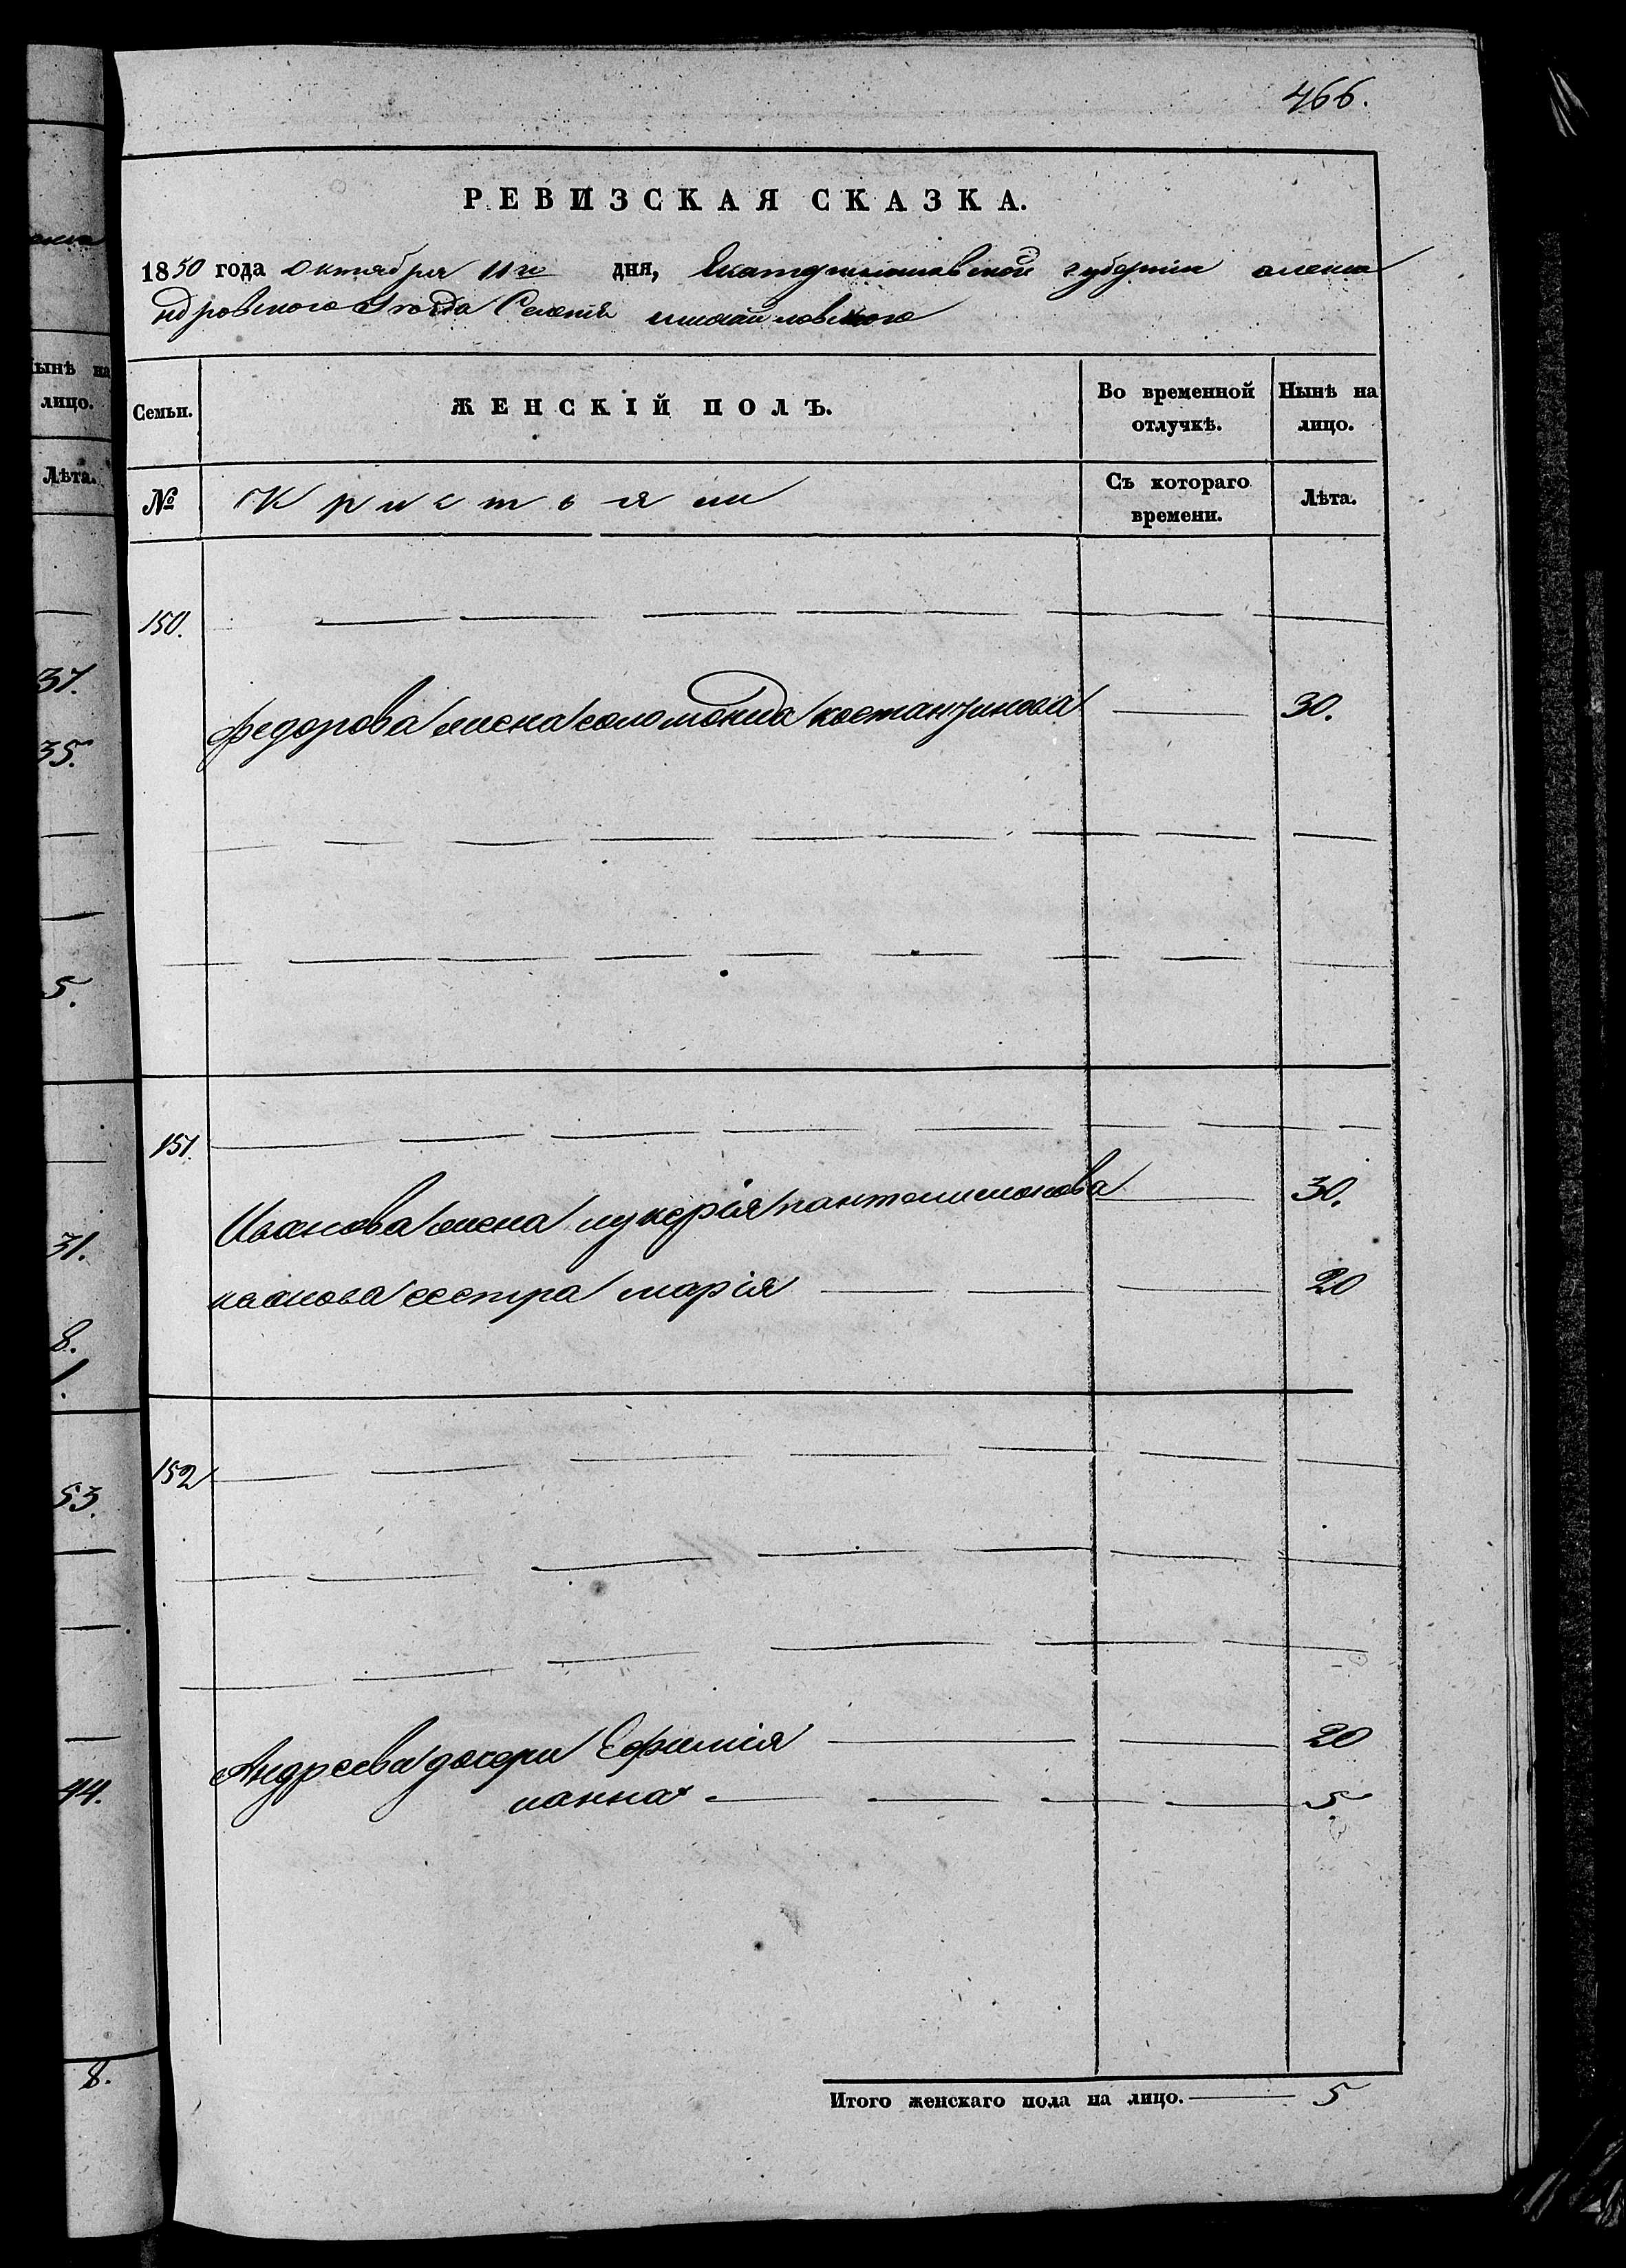 466.
РЕВИЗСКАЯ СКАЗКА.
1850 года Октября 11го дня, Екатеринославской губернiи алекса
ндровского Уезда Селенiя михайловского
Семьи. ЖЕНСКIЙ ПОЛЪ. Во временной отлучкѣ. Нынѣ на лицо.
№ Кристьяни Съ котораго времени. Лѣта.
150.
федорова жена соломонида костантинова 30.
151.
Иванова жена лукерiя пантелимонова 30.
иванова сестра марiя 20
152
Андреева дочери Ефимiя 20
ианна 5.
Итого женскаго пола на лицо. 5
ынѣ на
лицо.
Лѣта.
37.
35.
5.
31.
8.
1.
53.
44.
8.